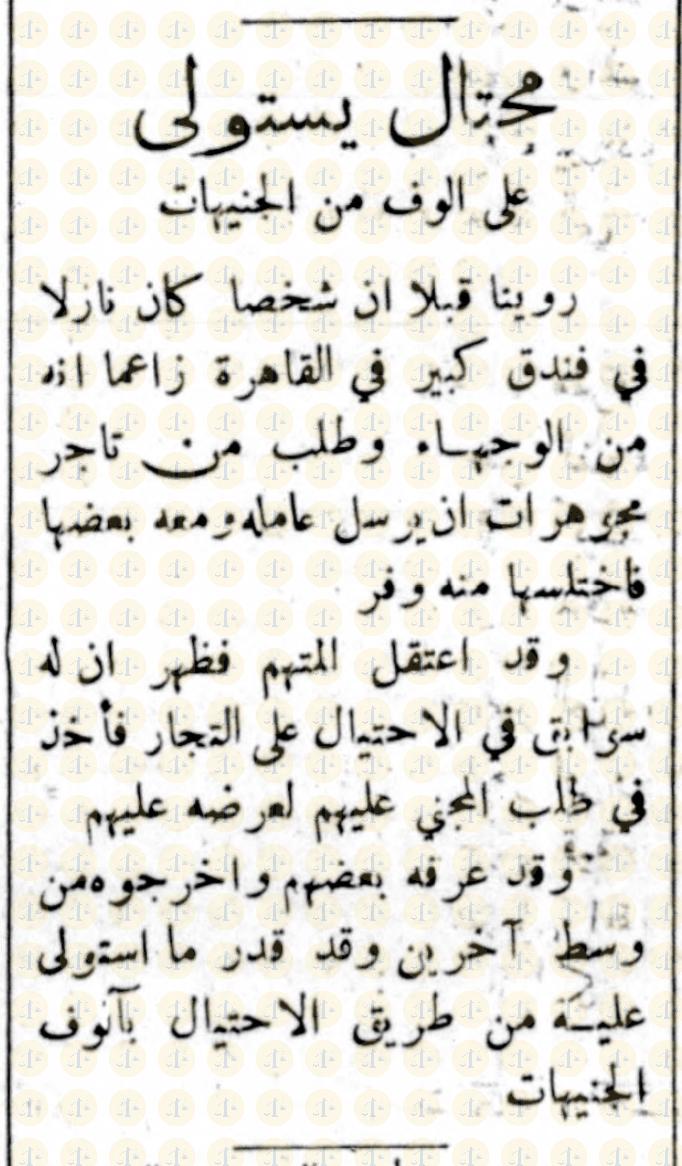 محتال يستولى
على الوف من الجنيهات
روينا قبلا ان شخصا كان نازلا
في فندق كبير في القاهرة زاعما انه
من الوجهاء وطلب من تاجر
مجوهرات ان يرسل عامله ومعه بعضها
فاختلسها منه وفر
وقد اعتقل المتهم فظهر ان له
سوابق في الاحتيال على التجار فأخذ
في طلب المجني عليهم لعرضه عليهم
وقد عرفه بعضهم واخرجوه من
وسط آخرين وقد قدر ما استولى
عليه من طريق الاحتيال بآلوف
الجنيهات